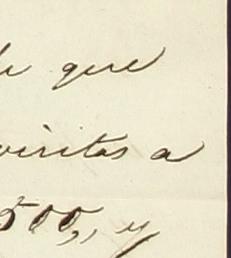 de que
visitas a
500,, y